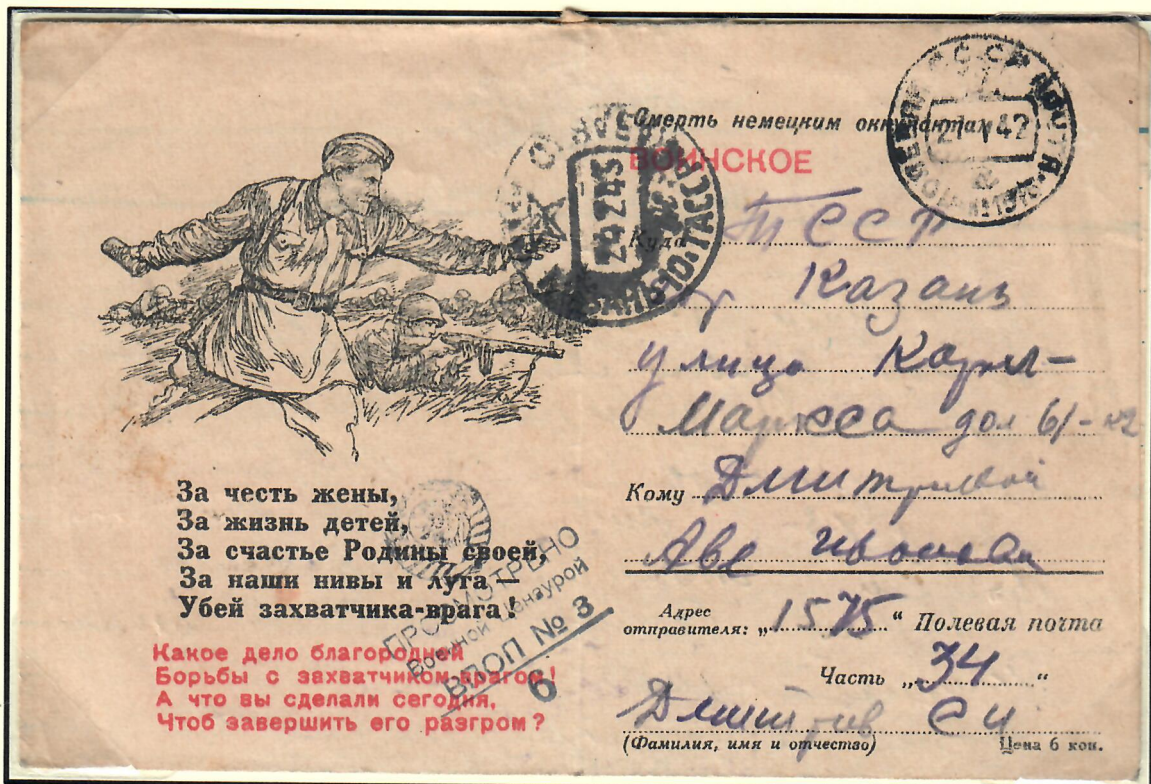 Смерть немецким оккупантам
ВОИНСКОЕ
Куда ТССР
гор Казань
улица Карл-
Маркса дом 61-
Кому Дмитриевой
Аве Ивановой
Адрес
отправителя: „1575“ Полевая почта
Часть „34“
Дмитриев СИ
(Фамилия, имя и отчество) Цена 6 коп.
За честь жены,
За жизнь детей,
За счастье Родины своей,
За наши нивы и луга —
Убей захватчика-врага!
Какое дело благородней
Борьбы с захватчиком-врагом!
А что вы сделали сегодня,
Чтоб завершить его разгром?
ПРОСМОТРЕНО
Военной Цензурой
№ 3
6
24 2 43
КАЗАНЬ 10. ТАССР
СССР ПОЧТА
42